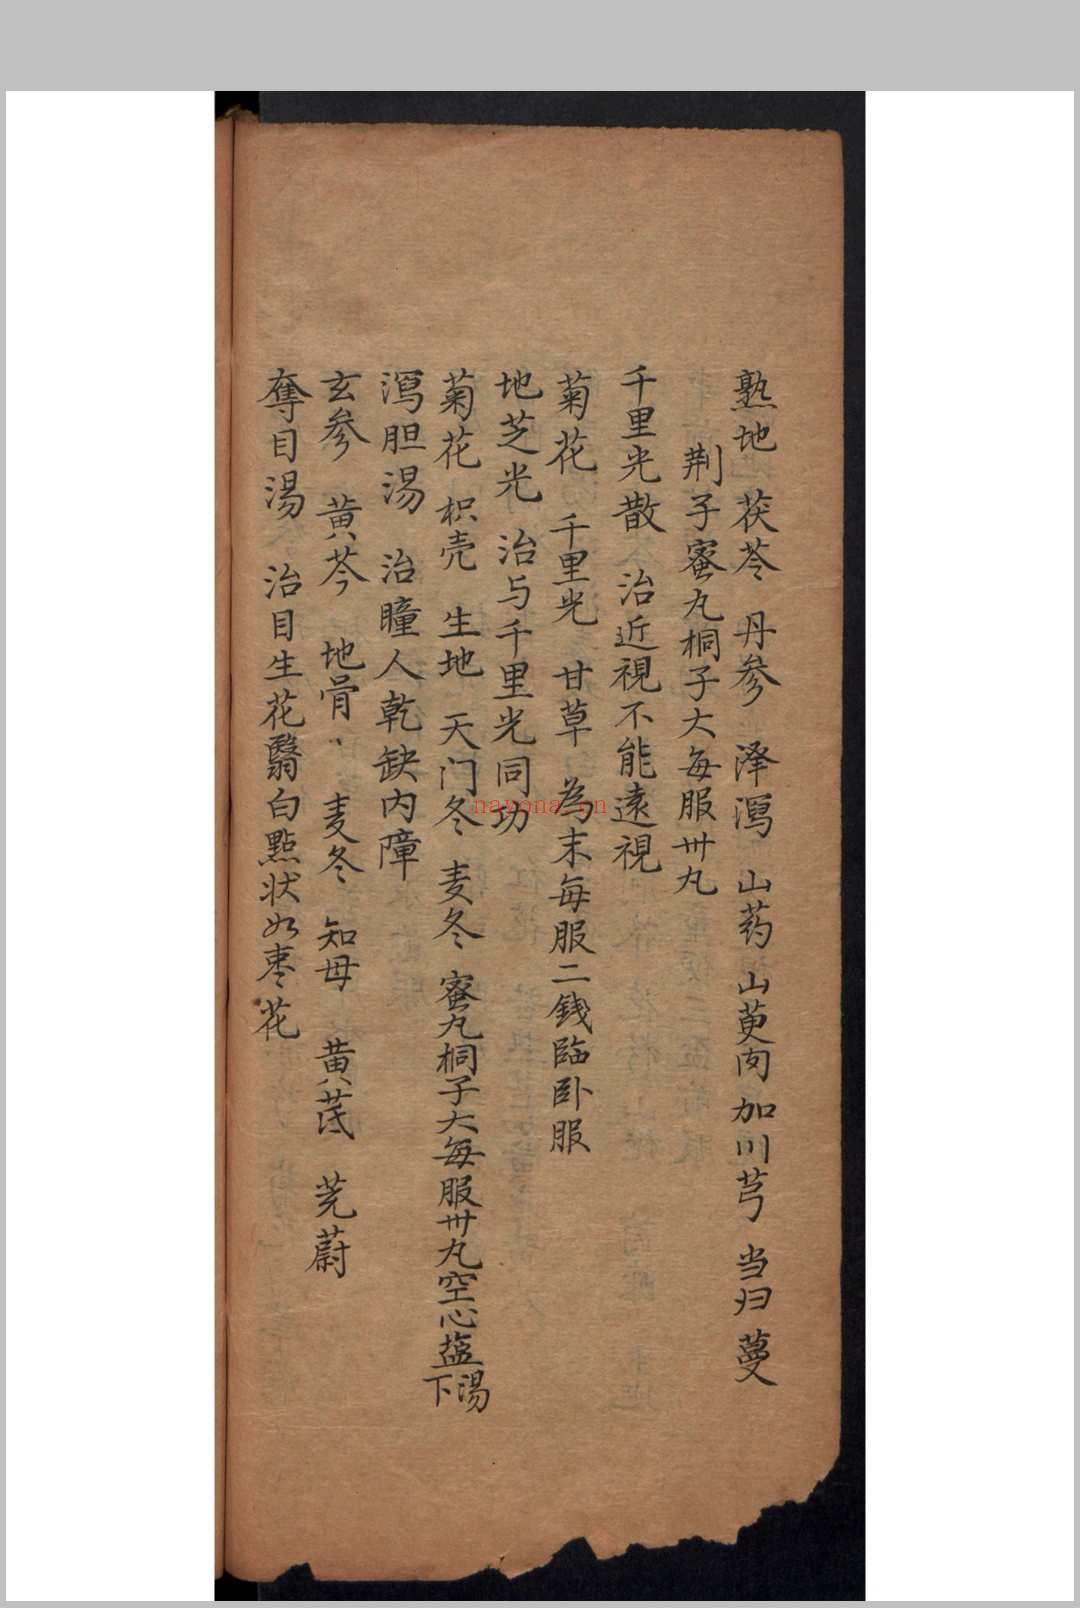 熟地 茯苓 丹参 泽瀉 山药 山萸肉 加川芎 当归 蔓
荆子蜜丸桐子大每服卅丸
千里光散 治近視不能遠視
菊花 千里光 甘草 為末每服二錢臨卧服
地芝光 治与千里光同功
菊花 枳壳 生地 天门冬 麦冬 蜜丸桐子大每服卅丸空心盐湯下
瀉胆湯 治瞳人乾缺内障
玄参 黄芩 地骨 麦冬 知母 黄芪 茺蔚
奪目湯 治目生花翳白點状如枣花
nayona.cn